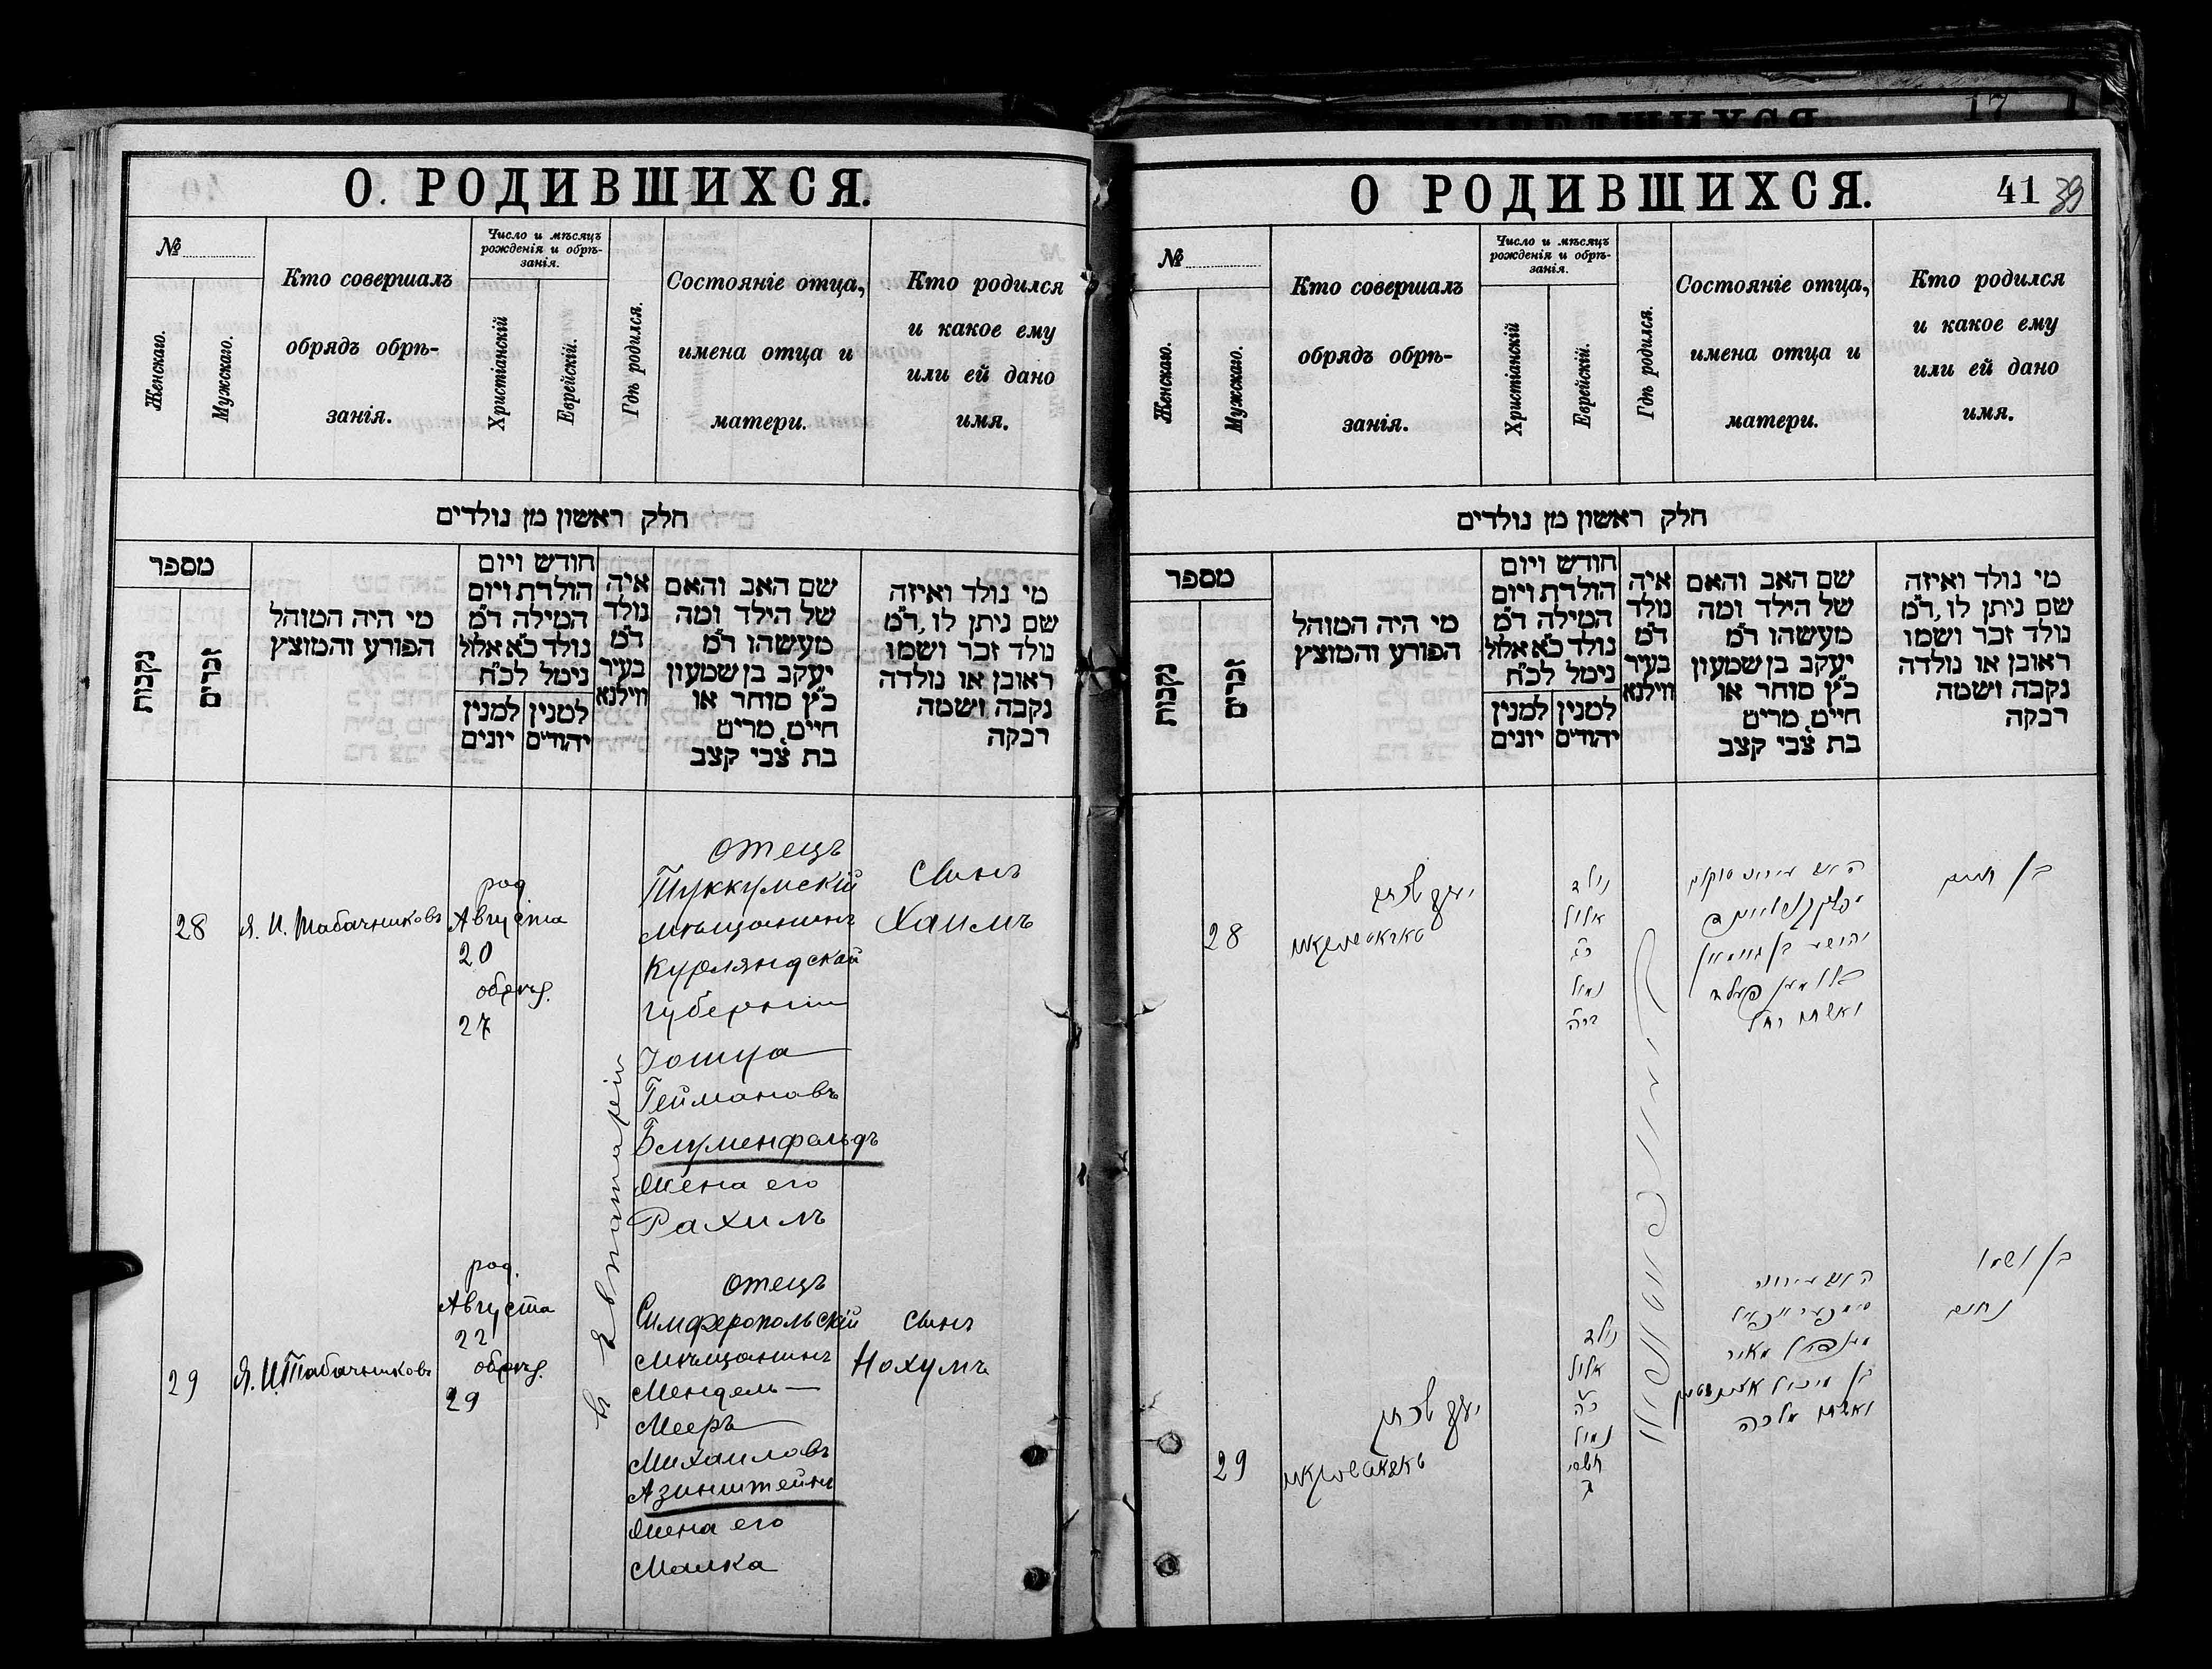 О. РОДИВШИХСЯ.
№
Женскаго.
Мужскаго.
Кто совершалъ
обрядъ обрѣ-
занія.
Число и мѣсяцъ
рожденія и обрѣ-
занія.
Христіанскій
Еврейскій.
Гдѣ родился.
Состояніе отца,
имена отца и
матери.
Кто родился
и какое ему
или ей дано
имя.
חלק ראשון מן נולדים
מספר
נקבות
זכרים
מי היה המוהל
הפורע והמוצץ
חודש ויום
הולדת ויום
המילה ד"מ
נולד כ"א אלול
נימל לכ"ח
למנין יהודים
למנין יונים
איה
נולד
ד"מ
בעיר
ווילנא
שם האב והאם
של הילד ומה
מעשהו ד"מ
יעקב בן שמעון
כ"ץ סוחר או
חיים, מרים
בת צבי קצב
מי נולד ואיזה
שם ניתן לו, ד"מ
נולד זכר ושמו
ראובן או נולדה
נקבה ושמה
רבקה
28
Я. И. Табачниковъ
род.
Августа
20
обрѣз.
27
в Евпаторіи
отецъ
Туккумскій
мѣщанинъ
Курляндской
губерніи
Іошуа
Геймановъ
Блуменфельдъ
Жена его
Рахиль
Сынъ
Хаимъ
29
Я. И. Табачниковъ
род.
Августа
22
обрѣз.
29
отецъ
Симферопольскій
мѣщанинъ
Мендель
Мееръ
Михаиловъ
Азинштейнъ
Жена его
Малка
сынъ
Нохумъ
О РОДИВШИХСЯ.
41
39
№
Женскаго.
Мужскаго.
Кто совершалъ
обрядъ обрѣ-
занія.
Число и мѣсяцъ
рожденія и обрѣ-
занія.
Христіанскій
Еврейскій.
Гдѣ родился.
Состояніе отца,
имена отца и
матери.
Кто родился
и какое ему
или ей дано
имя.
חלק ראשון מן נולדים
מספר
נקבות
זכרים
מי היה המוהל
הפורע והמוצץ
חודש ויום
הולדת ויום
המילה ד"מ
נולד כ"א אלול
נימל לכ"ח
למנין יהודים
למנין יונים
איה
נולד
ד"מ
בעיר
ווילנא
שם האב והאם
של הילד ומה
מעשהו ד"מ
יעקב בן שמעון
כ"ץ סוחר או
חיים, מרים
בת צבי קצב
מי נולד ואיזה
שם ניתן לו, ד"מ
נולד זכר ושמו
ראובן או נולדה
נקבה ושמה
רבקה
28
נולד
אלול
נמול
ואשתו רחל
בן חיים
29
נולד
אלול
נמול
תשרי
ואשתו מלכה
בן ושמו
נחום